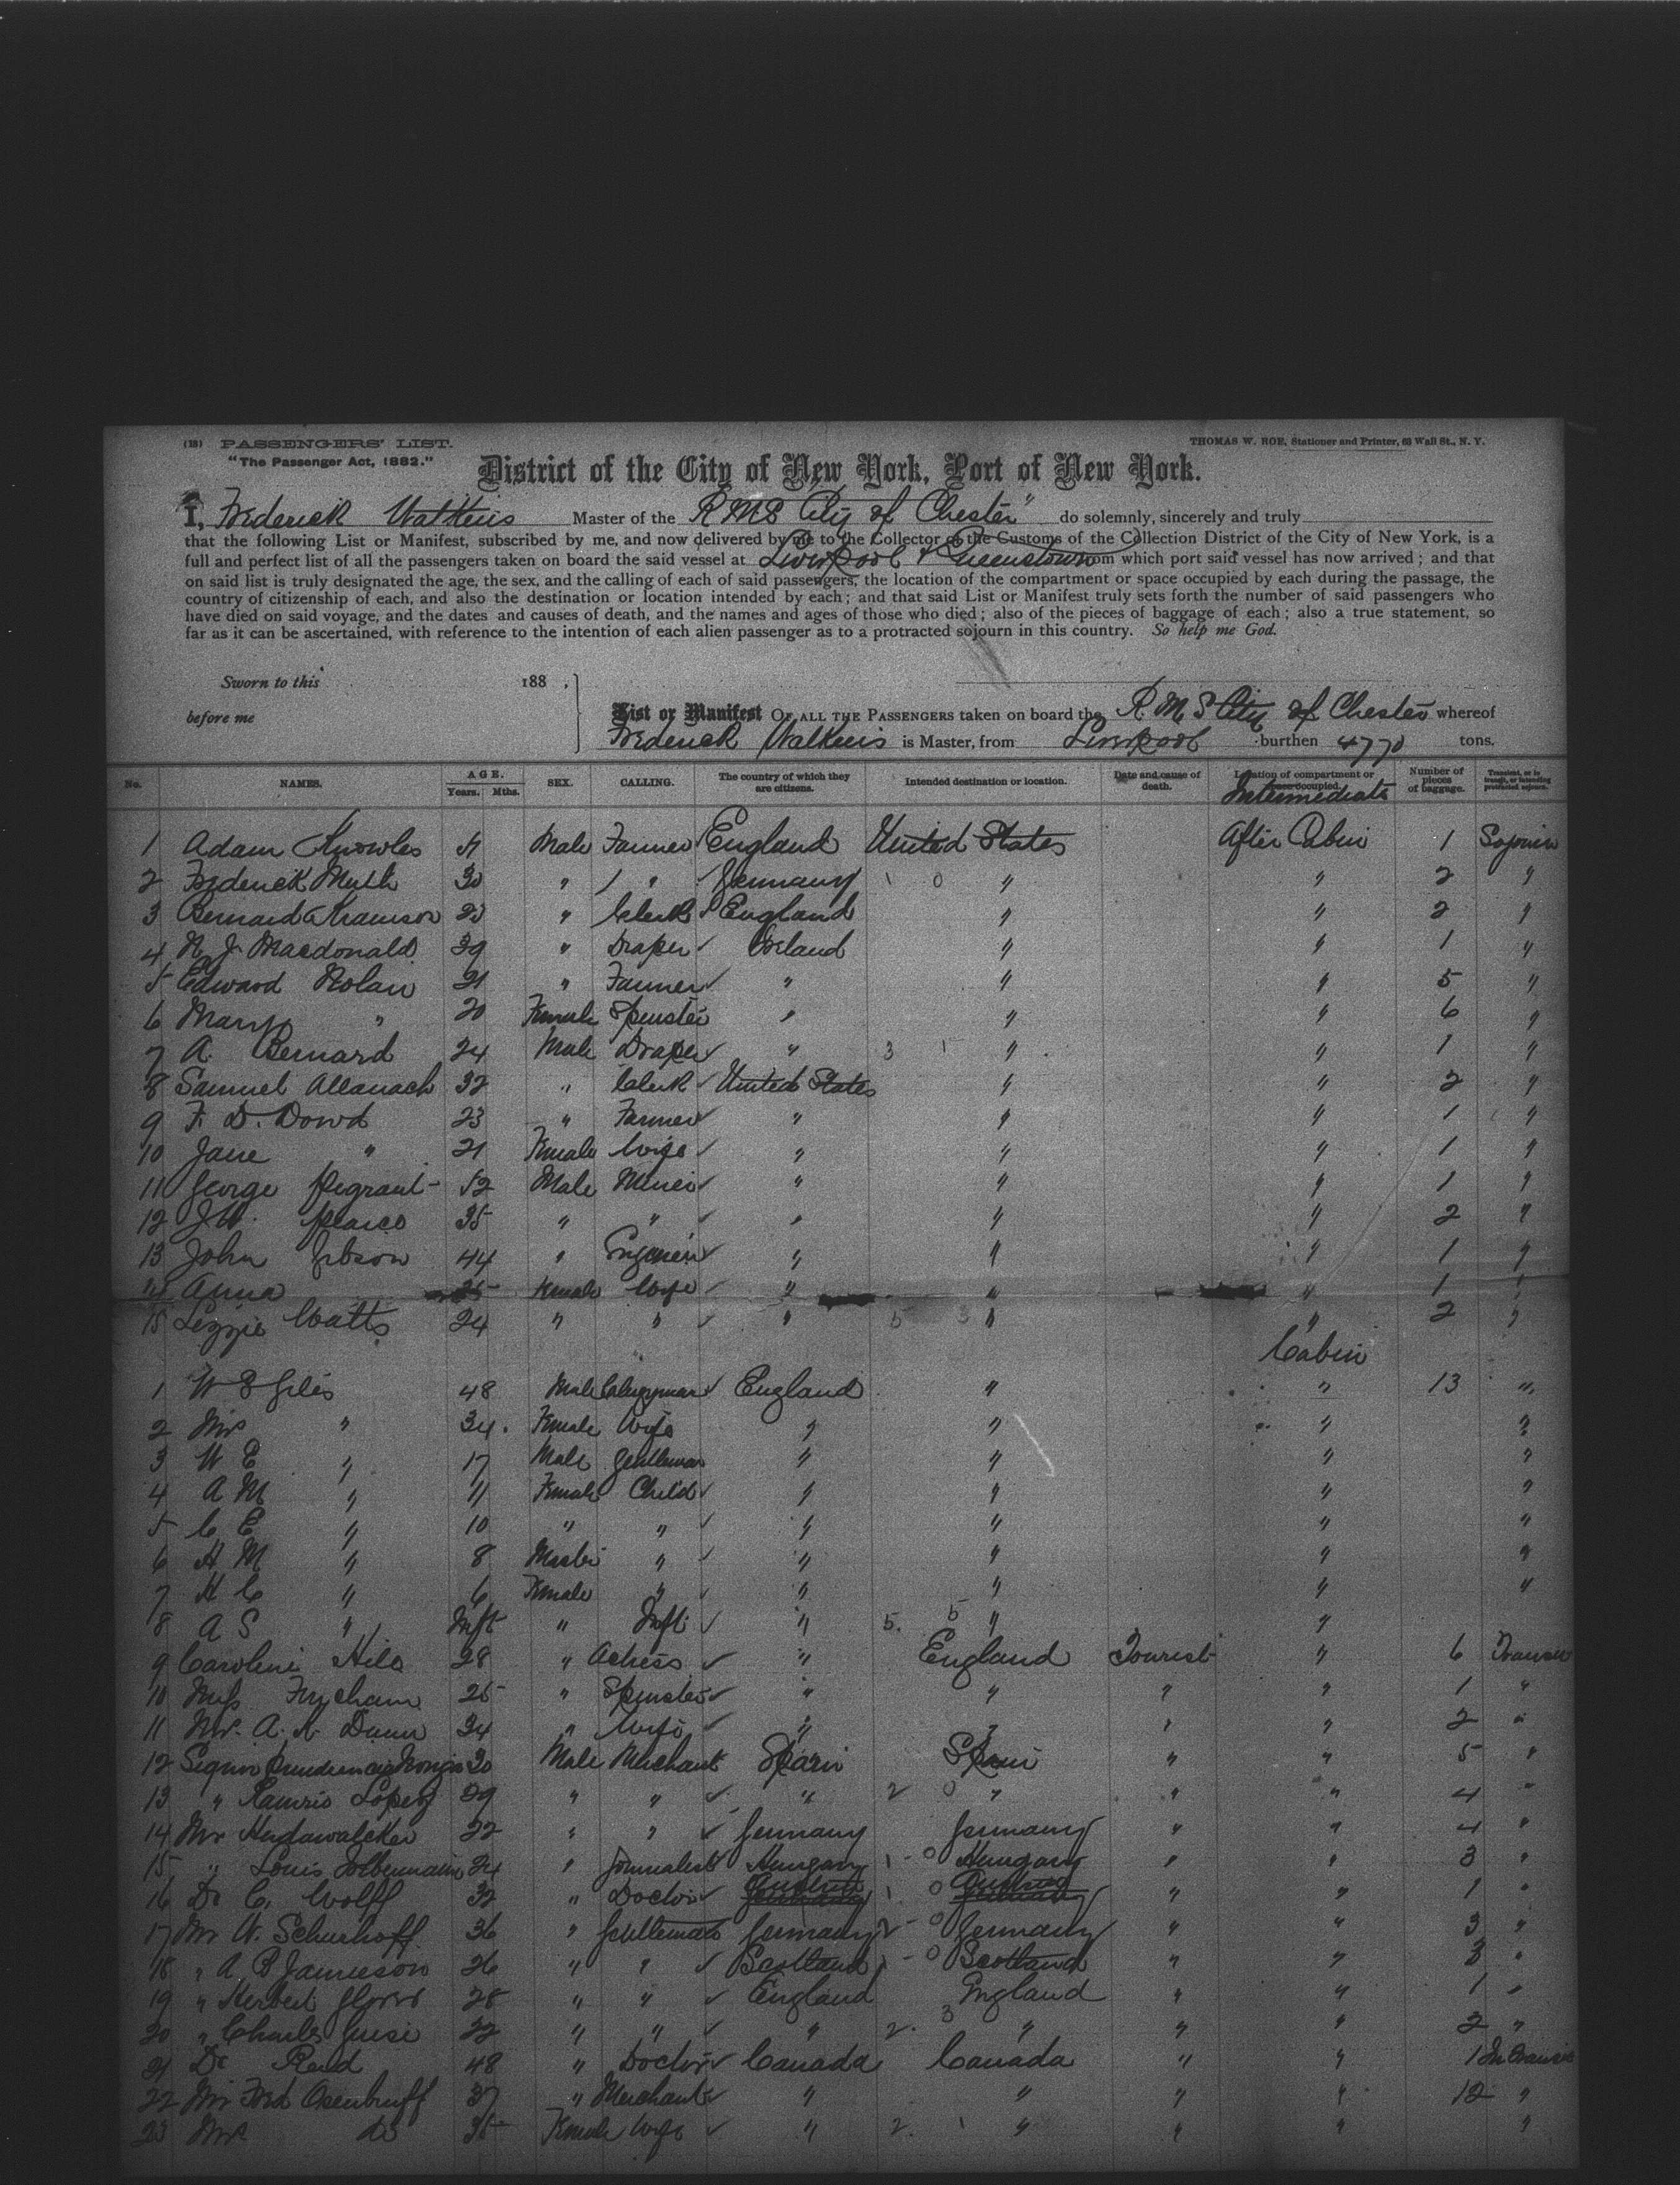 (18) PASSENGERS' LIST. THOMAS W. ROE, Stationer and Printer, 63 Wall St., N. Y.
"The Passenger Act, 1882."
District of the City of New York, Port of New York.
I, Frederick Watkins Master of the R.M.S "City of Chester" do solemnly, sincerely and truly
that the following List or Manifest, subscribed by me, and now delivered by me to the Collector of the Customs of the Collection District of the City of New York, is a
full and perfect list of all the passengers taken on board the said vessel at Liverpool & Queenstown from which port said vessel has now arrived; and that
on said list is truly designated the age, the sex, and the calling of each of said passengers, the location of the compartment or space occupied by each during the passage, the
country of citizenship of each, and also the destination or location intended by each; and that said List or Manifest truly sets forth the number of said passengers who
have died on said voyage, and the dates and causes of death, and the names and ages of those who died; also of the pieces of baggage of each; also a true statement, so
far as it can be ascertained, with reference to the intention of each alien passenger as to a protracted sojourn in this country. So help me God.
Sworn to this 188 ,
before me
List or Manifest OF ALL THE PASSENGERS taken on board the R.M.S City of Chester whereof
Frederick Watkins is Master, from Liverpool burthen 4770 tons.
No. NAMES. AGE. Years. Mths. SEX. CALLING. The country of which they are citizens. Intended destination or location. Date and cause of death. Location of compartment or space occupied. Number of pieces of baggage. Transient, or in transit, or intending protracted sojourn.
Intermediate
1 Adam Knowles Male Farmer England United States After Cabin 1 Sojourn
2 Frederick Muth 30 " " Germany 1 0 " " 2 "
3 Bernard 23 " Clerk England " " 2 "
4 Macdonald 39 " Draper Ireland " " 1 "
5 Edward Nolan 21 " Farmer " " " 5 "
6 Mary " 20 Female Spinster " " " 6 "
7 A. Bernard 24 Male Draper " 3 1 " " 1 "
8 Samuel Allanach 32 " Clerk United States " " 2 "
9 F. D. Dowd 23 " Farmer " " " 1 "
10 Jane " 21 Female Wife " " " 1 "
11 George Pegrant 52 Male Miner " " " 1 "
12 J.W. Pearce 35 " " " " " 2 "
13 John Gibson 44 " Engineer " " " 1 "
14 Anna 25 Female Wife " " " 1 "
15 Lizzie Watts 24 " " " 5 3 " " 2 "
Cabin
1 W E Giles 48 Male Clergyman England " " 13 "
2 Mrs " 34 Female Wife " " " "
3 W E " 17 Male Gentleman " " " "
4 A M " 11 Female Child " " " "
5 C E " 10 " " " " " "
6 H M " 8 " " " " "
7 H C " 6 Female " " " " "
8 A S " Inft " Inft " 5. 5 " "
9 Caroline Hill 28 " Actress " England Tourist " 6
10 Miss 25 " Spinster " " " " 1 "
11 Mrs. A. K. Dunn 34 " Wife " " " " 2 "
12 30 Male Merchant Spain Spain " " 5 "
13 " Lopez 29 " " " 2 0 " " " 4 "
14 Mr 22 " " Germany Germany " " 4 "
15 " Louis 24 " Journalist Hungary 1 - 0 Hungary " " 3 "
16 Dr C. Wolff 32 " Doctor Austria 1 0 Austria " " 1 "
17 Mr W. Schurhoff 36 " Gentleman Germany 2 - 0 Germany " " 3 "
18 " A B Jamieson 26 " " Scotland 1 - 0 Scotland " " 3 "
19 " Herbert 28 " " England England " " 1 "
20 " Charles 22 " " " 2. 3 " " " 2 "
21 Dr Reid 48 " Doctor Canada Canada " " 1 In Transit
22 Mr Fred 37 " Merchant " " " " 12 "
23 Mrs Do 35 Female Wife " 2. 1 " " " "